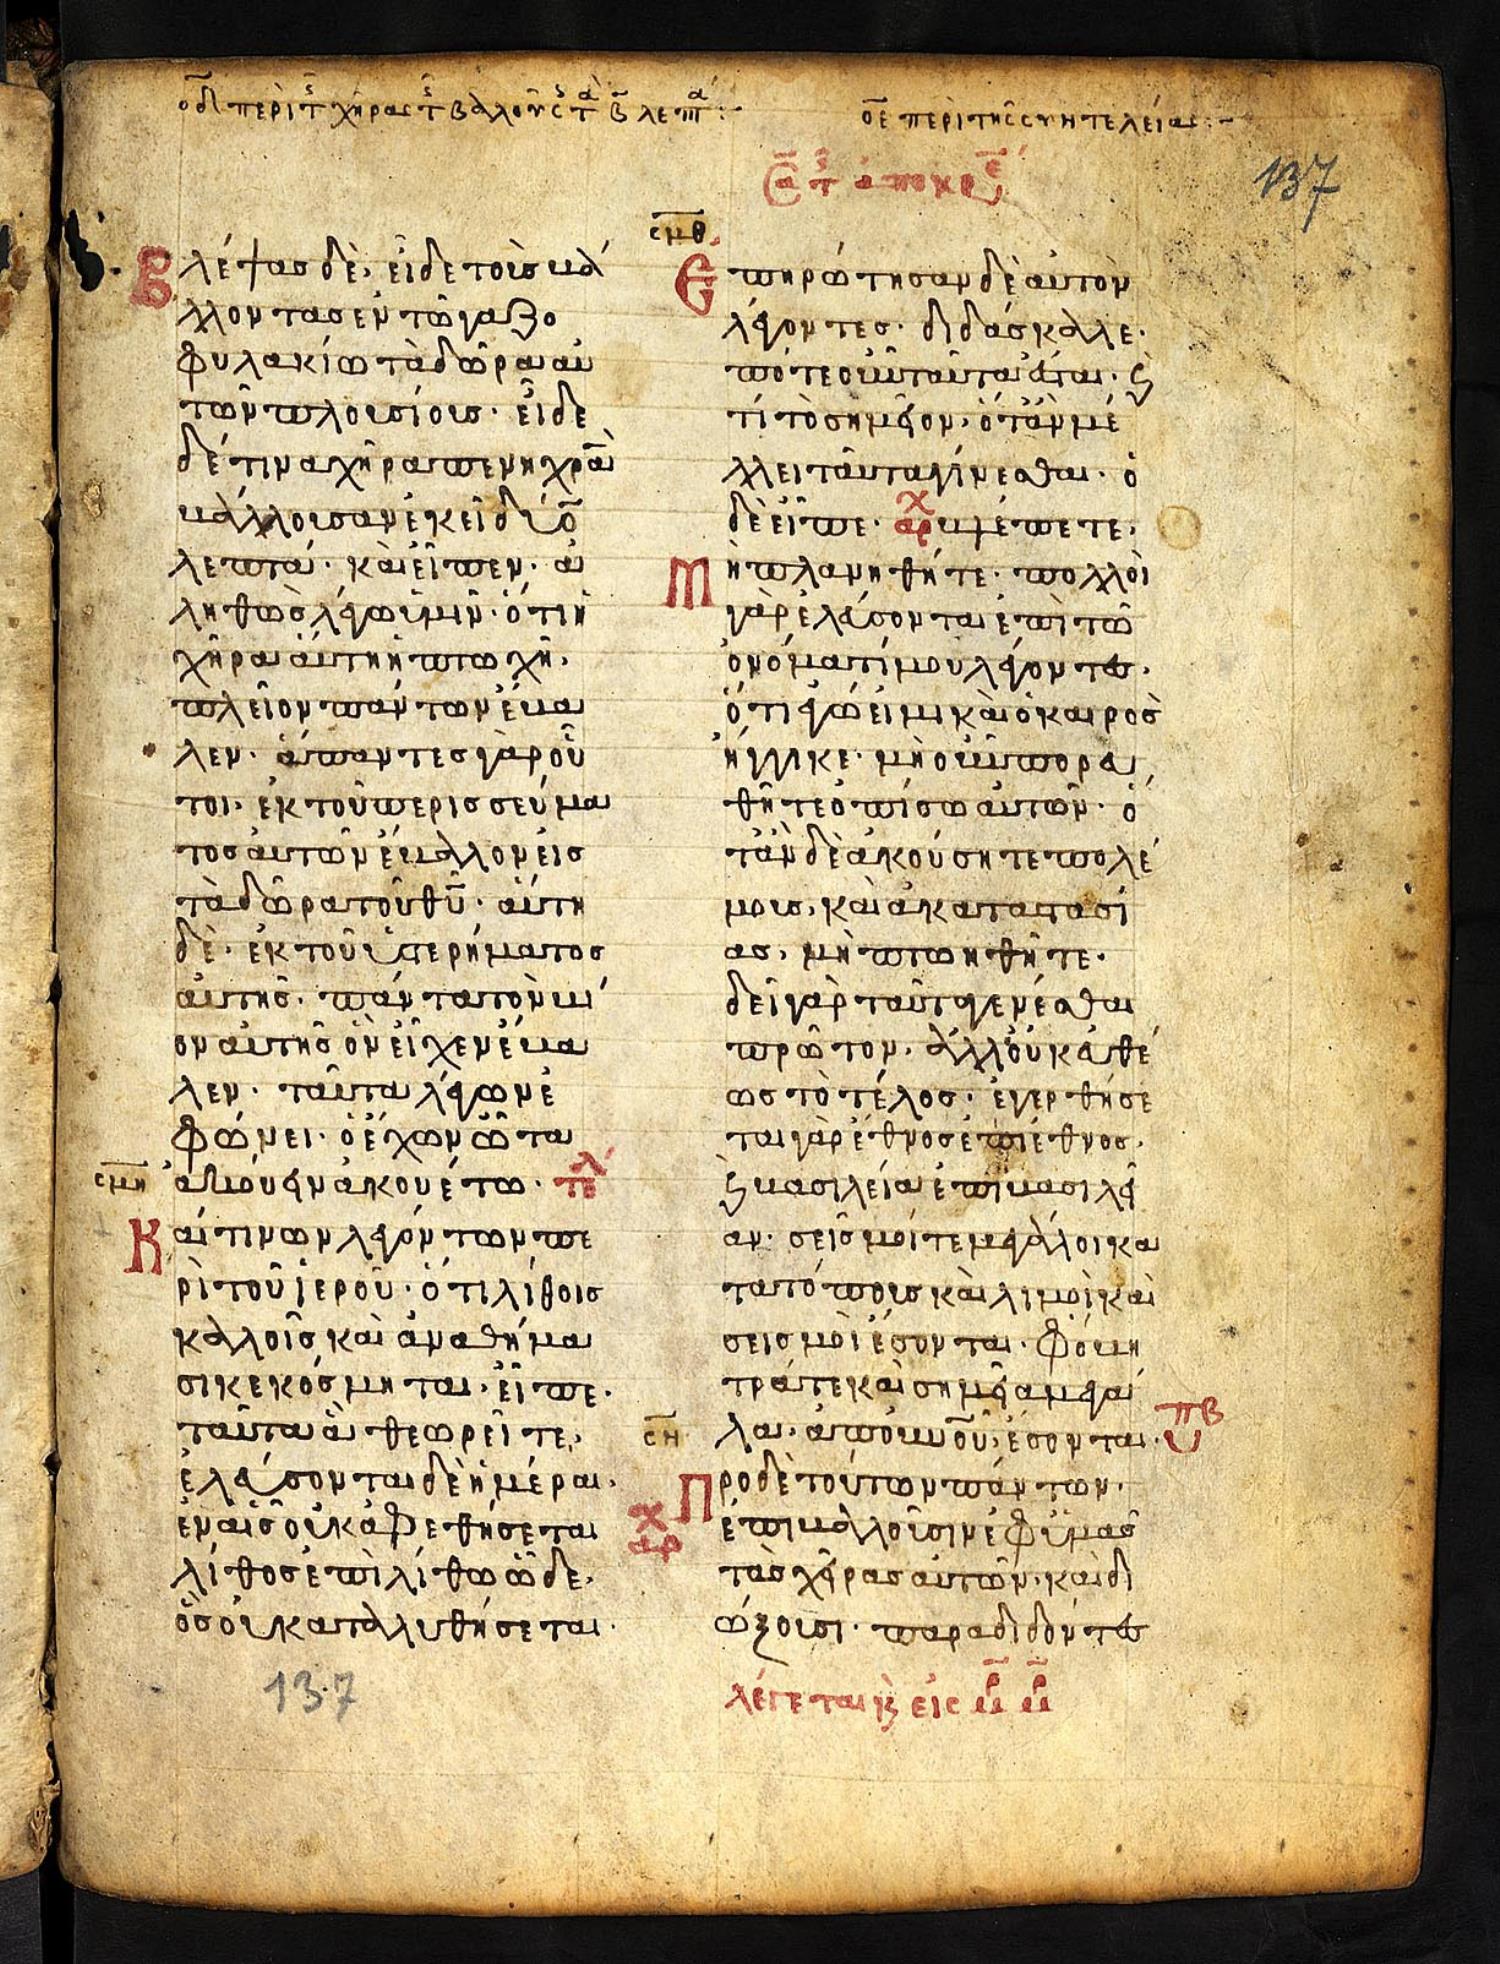 οδ περὶ τ χήρας τ βαλούς τὰ β λεπτα :-
οε περὶ τῆς συντελείας :-
137
σμθ
Βλέψας δὲ, εἶδε τοὺς βά
λλοντας ἐν τῶ γαζο
φυλακίω τὰ δῶρα αὐ
τῶν πλουσίους · εἶδε
δέ τινα χῆραν πενηχρὰν
βάλλουσαν ἐκεῖ δύο
λεπτά · καὶ εἶπεν · ἀ
ληθῶς λέγω ὑμῖν · ὅτι ἡ
χῆρα αὕτη ἡ πτωχὴ,
πλεῖον πάντων ἔβα
λεν · ἅπαντες γὰρ οὗ
τοι, ἐκ τοῦ περισσεύμα
τος αὐτῶν ἔβαλλον εἰς
τὰ δῶρα τοῦ θῦ · αὕτη
δὲ · ἐκ τοῦ ὑστερήματος
αὐτῆς · πάντα τὸν βί
ον αὐτῆς ὃν εἶχεν ἔβα
λεν · ταῦτα λέγων ἐ
φώνει · ὁ ἔχων ὦτα
σμη ἀκούειν ἀκουέτω · τελ
Καί τινων λεγόντων πε
ρὶ τοῦ ἱεροῦ · ὅτι λίθοις
καλλοῖς καὶ ἀναθήμα
σι κεκόσμηται, εἶπε ·
ταῦτα ἃ θεωρεῖτε,
ἐλεύσονται δὲ ἡμέραι,
ἐν αἷς οὐκ ἀφεθήσεται
λίθος ἐπὶ λίθω ὧδε,
ὃς οὐ καταλλυθήσεται ·
137
Ἐπηρώτησαν δὲ αὐτὸν
λέγοντες · διδάσκαλλε ·
πότε οὖν ταῦτα ἔσται · ϗ
τί τὸ σημεῖον, ὅτἂν μέ
λλει ταῦτα γίνεσθαι · ὁ
δὲ εἶπε · αρχ βλέπετε,
Μὴ πλανηθῆτε · πολλοὶ
γὰρ ἐλεύσονται ἐπὶ τῶ
ὀνόματί μου λέγοντες,
ὅτι ἐγώ εἰμι καὶ ὁ καιρὸς
ἤγγικε · μὴ οὖν πορευ
θῆτε ὀπίσω αὐτῶν · ὅ
τἂν δὲ ἀκούσητε πολέ
μους, καὶ ἀκαταστασί
ας, μὴ πτωηθῆτε ·
δεῖ γὰρ ταῦτα γενέσθαι
πρῶτον, ἀλλ' οὐκ εὐθέ
ως τὸ τέλος · ἐγερθήσε
ται γὰρ ἔθνος ἐπὶ ἔθνος,
ϗ βασιλεία ἐπὶ βασιλεί
αν · σεισμοί τε μεγάλλοι κα
τὰ τόπους καὶ λιμοὶ καὶ
σεισμοὶ ἔσονται · φόβη
τρά τε καὶ σημεῖα μεγά
σν λα, ἀπὸ οὐνοῦ, ἔσονται · υπβ
Πρὸ δὲ τούτων πάντων,
αρχ ἐπιβάλλουσιν ἐφ' ὑμᾶς
τὰς χεῖρας αὐτῶν, καὶ δι
ώξουσι · παραδιδόντες